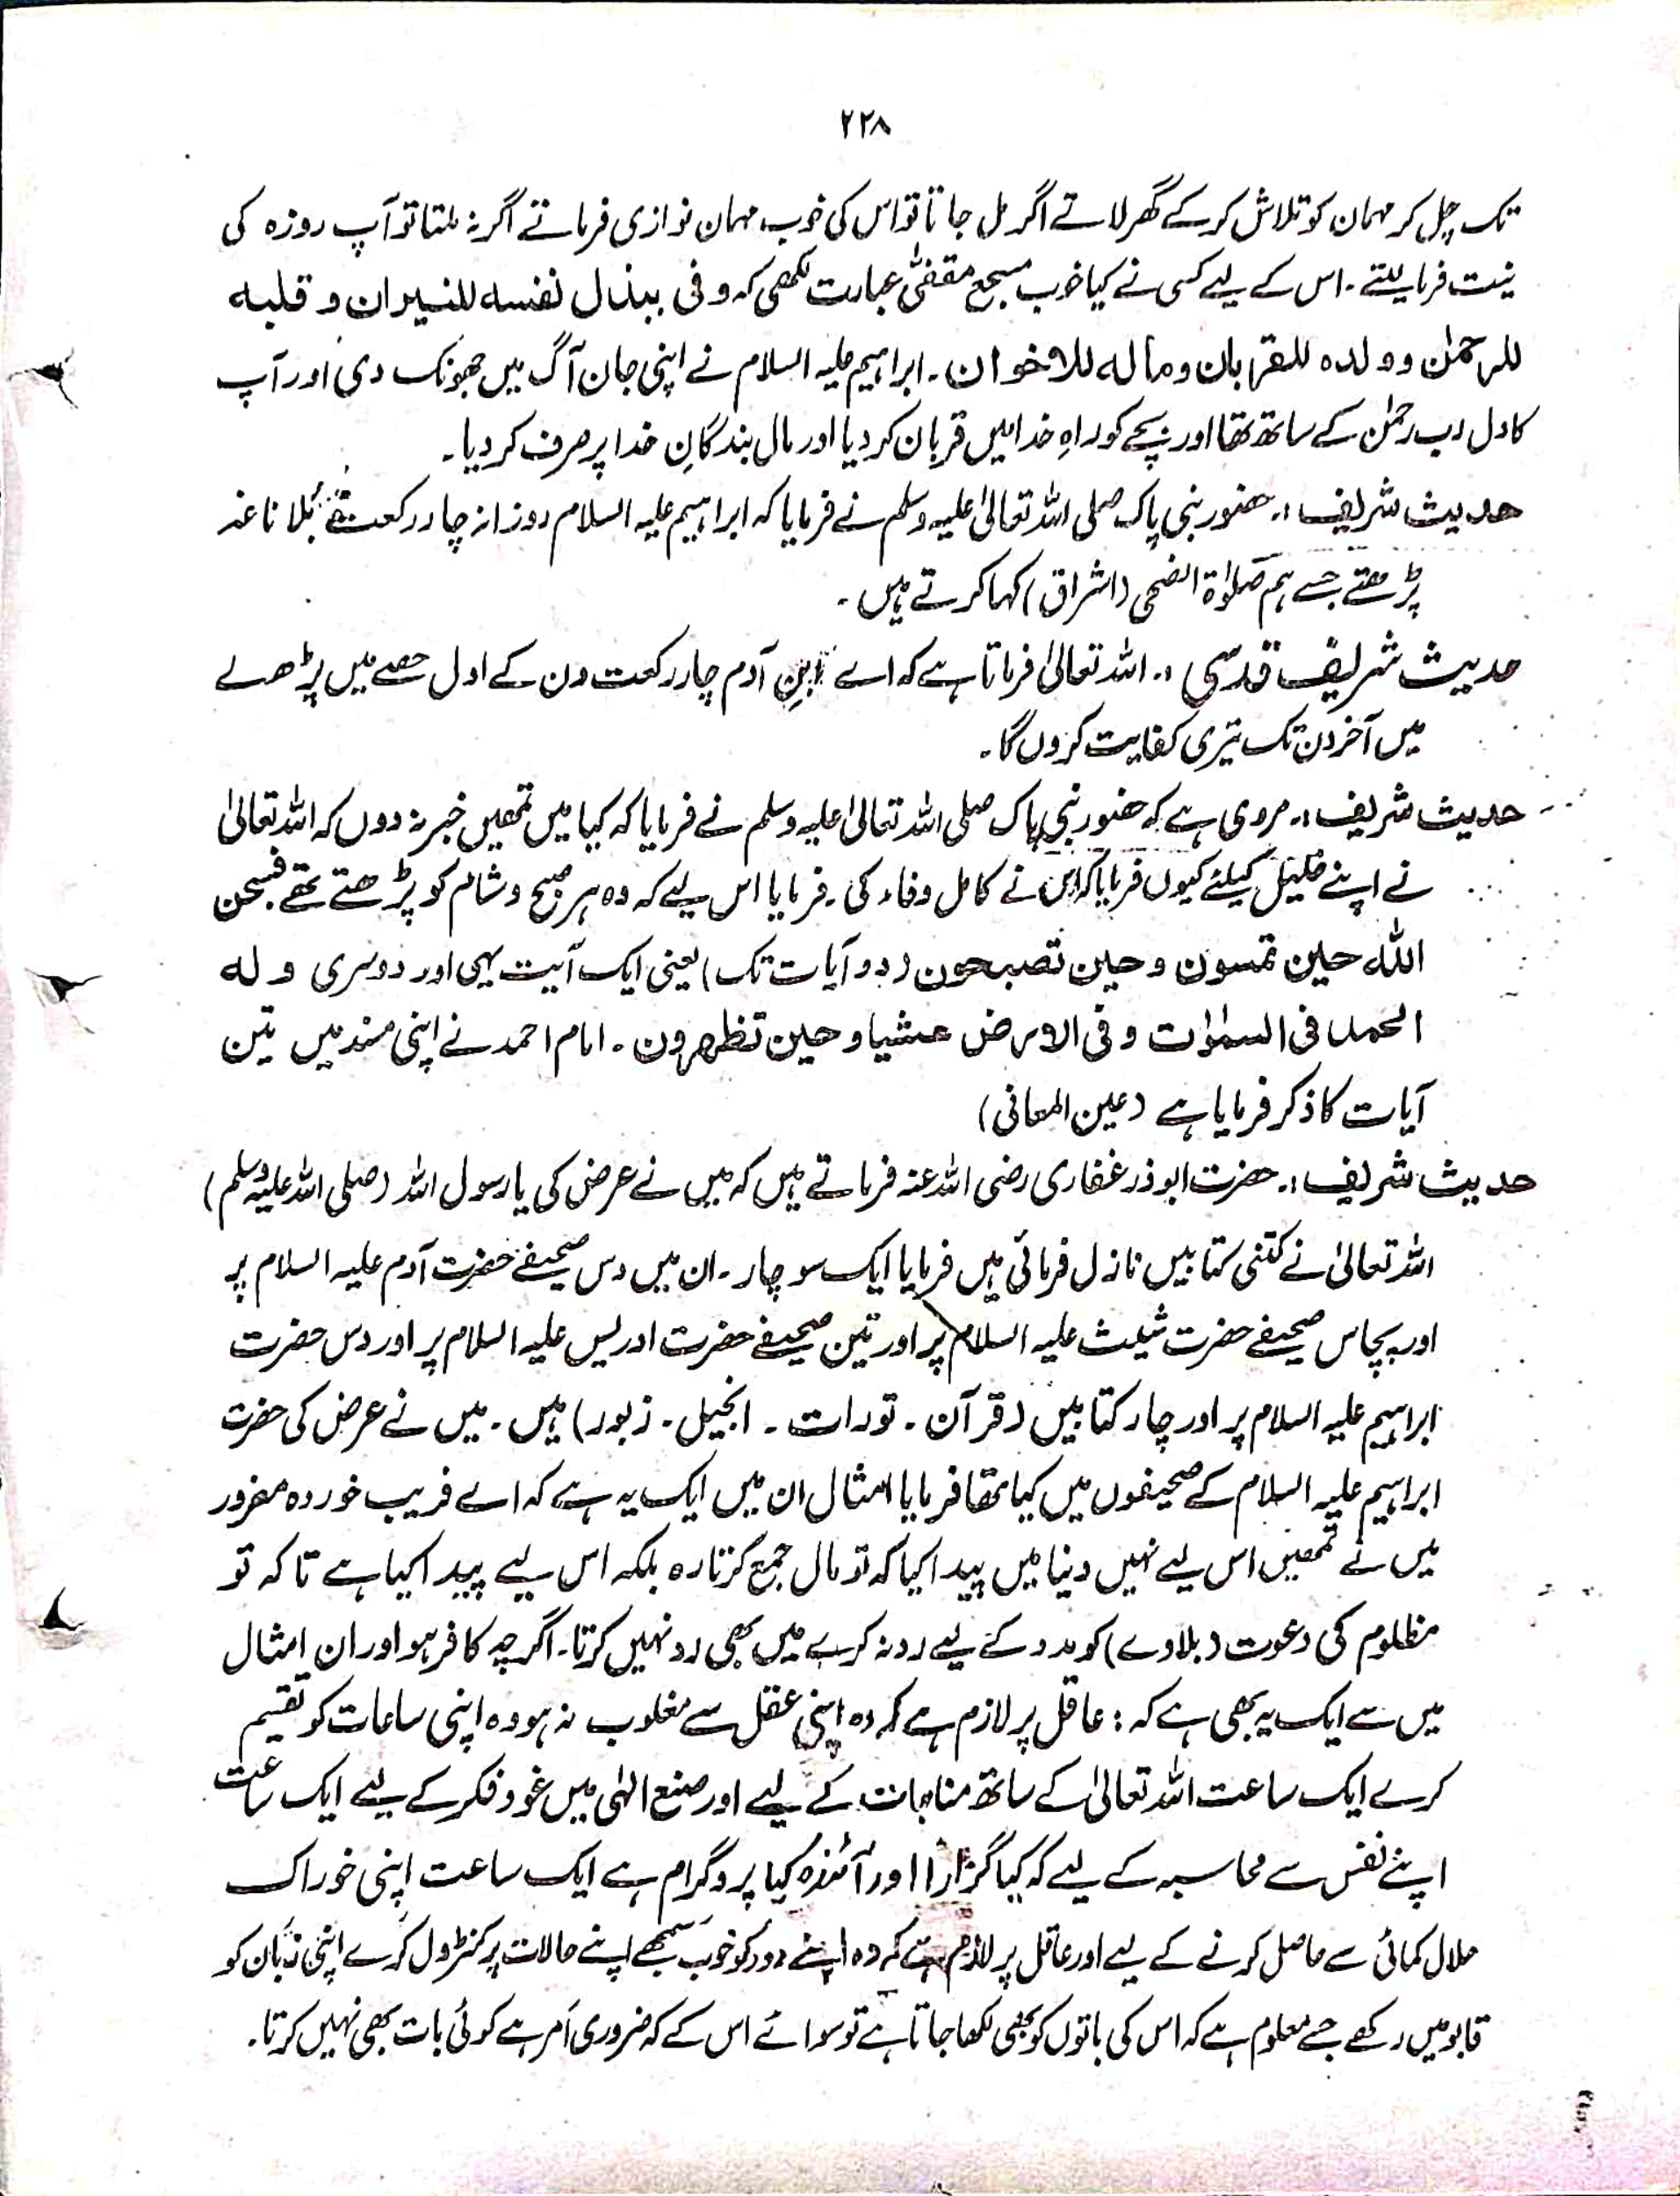 ۲۲۸
تک چل کر مہمان کو تلاش کر کے گھر لاتے اگر مل جاتا تو اس کی خوب مہمان نوازی فرماتے اگر نہ ملتا تو آپ روزہ کی
نیت فرما لیتے ۔ اس کے لیے کسی نے کیا خوب مسجع مقفیٰ عبارت لکھی کہ وفی ببذل نفسه للنیران و قلبه
للرحمٰن وولده للقربان وماله للاخوان ۔ ابراہیم علیہ السلام نے اپنی جان آگ میں جھونک دی اور آپ
کا دل رب رحمٰن کے ساتھ تھا اور بچے کو راہِ خدا میں قربان کر دیا اور مال بندگانِ خدا پر صرف کر دیا ۔
حدیث شریف :۔ حضور نبی پاک صلی اللہ تعالیٰ علیہ وسلم نے فرمایا کہ ابراہیم علیہ السلام روزانہ چار رکعت بلا ناغہ
پڑھتے جسے ہم صلوٰۃ الضحی (اشراق) کہا کرتے ہیں ۔
حدیث شریف قدسی :۔ اللہ تعالیٰ فرماتا ہے کہ اے ابنِ آدم چار رکعت دن کے اول حصے میں پڑھ لے
میں آخر دن تک تیری کفایت کروں گا ۔
حدیث شریف :۔ مروی ہے کہ حضور نبی پاک صلی اللہ تعالیٰ علیہ وسلم نے فرمایا کہ کیا میں تمھیں خبر نہ دوں کہ اللہ تعالیٰ
نے اپنے خلیل کیلئے کیوں فرمایا کہ اس نے کامل وفاء کی ۔ فرمایا اس لیے کہ وہ ہر صبح و شام کو پڑھتے تھے فسبحن
اللہ حین تمسون و حین تصبحون (دو آیات تک) یعنی ایک آیت یہی اور دوسری و له
الحمد فی السمٰوٰت و فی الارض عشیا و حین تظهرون ۔ امام احمد نے اپنی مسند میں تین
آیات کا ذکر فرمایا ہے (عین المعانی)
حدیث شریف :۔ حضرت ابوذر غفاری رضی اللہ عنہ فرماتے ہیں کہ میں نے عرض کی یا رسول اللہ (صلی اللہ علیہ وسلم)
اللہ تعالیٰ نے کتنی کتابیں نازل فرمائی ہیں فرمایا ایک سو چار ۔ ان میں دس صحیفے حضرت آدم علیہ السلام پر
اور پچاس صحیفے حضرت شیث علیہ السلام پر اور تین صحیفے حضرت ادریس علیہ السلام پر اور دس حضرت
ابراہیم علیہ السلام پر اور چار کتابیں (قرآن ۔ تورات ۔ انجیل ۔ زبور) ہیں ۔ میں نے عرض کی حضرت
ابراہیم علیہ السلام کے صحیفوں میں کیا تھا فرمایا امثال ان میں ایک یہ ہے کہ اے فریب خوردہ مغرور
میں نے تمھیں اس لیے نہیں دنیا میں پیدا کیا کہ تو مال جمع کرتا رہ بلکہ اس لیے پیدا کیا ہے تا کہ تو
مظلوم کی دعوت (بلاوے) کو مدد کے لیے رد نہ کرے میں بھی رد نہیں کرتا ۔ اگرچہ کافر ہو اور ان امثال
میں سے ایک یہ بھی ہے کہ : عاقل پر لازم ہے کہ وہ اپنی عقل سے مغلوب نہ ہو وہ اپنی ساعات کو تقسیم
کرے ایک ساعت اللہ تعالیٰ کے ساتھ مناجات کے لیے اور صنع الٰہی میں غور و فکر کے لیے ایک ساعت
اپنے نفس سے محاسبہ کے لیے کہ کیا گزارا اور آئندہ کیا پروگرام ہے ایک ساعت اپنی خوراک
حلال کمائی سے حاصل کرنے کے لیے اور عاقل پر لازم ہے کہ وہ اپنے دور کو خوب سمجھے اپنے حالات پر کنٹرول کرے اپنی زبان کو
قابو میں رکھے جسے معلوم ہے کہ اس کی باتوں کو بھی لکھا جاتا ہے تو سوائے اس کے کہ ضروری امر ہے کوئی بات بھی نہیں کرتا ۔